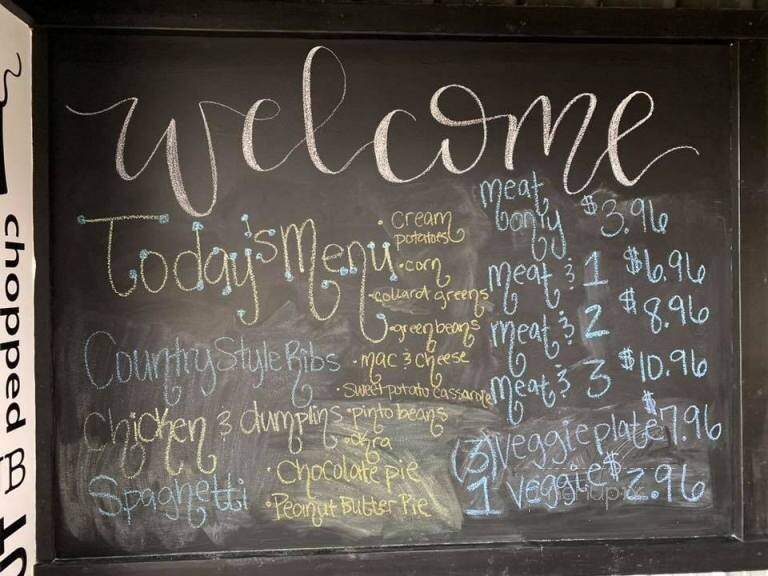 welcome
Today's Menu
Country Style Ribs
Chicken & dumplins
Spaghetti
• cream
potatoes
• corn
• collard greens
• green beans
• mac & cheese
• Sweet potato cassarole
• pinto beans
• okra
• Chocolate pie
• Peanut Butter Pie
meat only $3.96
meat & 1 $6.96
meat & 2 $8.96
meat & 3 $10.96
(3) veggie plate $7.96
1 veggie $2.96
chopped